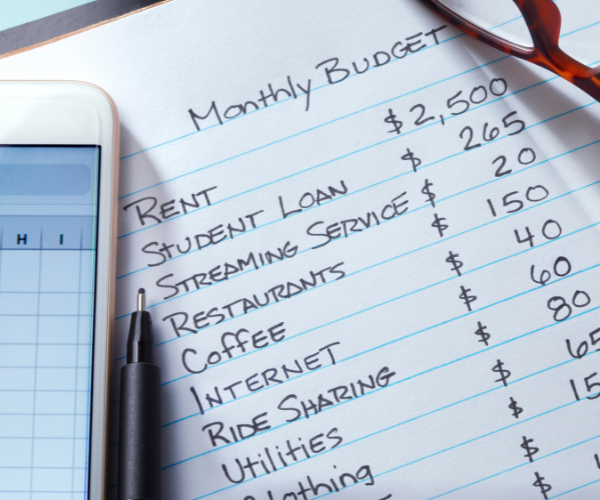 Monthly BUDGET
RENT $2,500
STUDENT LOAN $ 265
STREAMING SERVICE $ 20
RESTAURANTS $ 150
Coffee $ 40
INTERNET $ 60
RIDE SHARING $ 80
Utilities $ 65
Clothing $ 15
$
$
H I